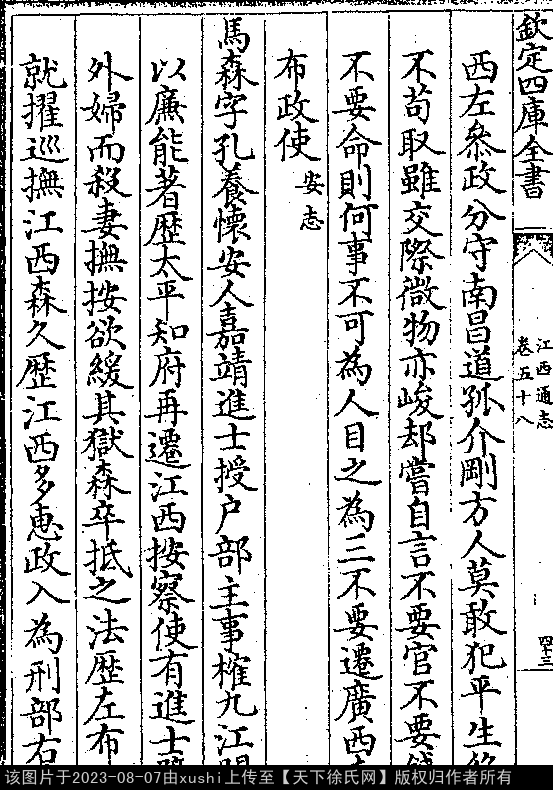 欽定四庫全書
江西通志
卷五十八
四十三
西左叅政分守南昌道孤介剛方人莫敢犯平生
不苟取雖交際微物亦峻却嘗自言不要官不要錢
不要命則何事不可為人目之為三不要遷廣西
布政使安志
馬森字孔養懷安人嘉靖進士授户部主事榷九江
以亷能著歴太平知府再遷江西按察使有進士
外婦而殺妻撫按欲緩其獄森卒抵之法歴左布
就擢巡撫江西森久歴江西多恵政入為刑部右
该图片于2023-08-07由xushi上传至【天下徐氏网】版权归作者所有